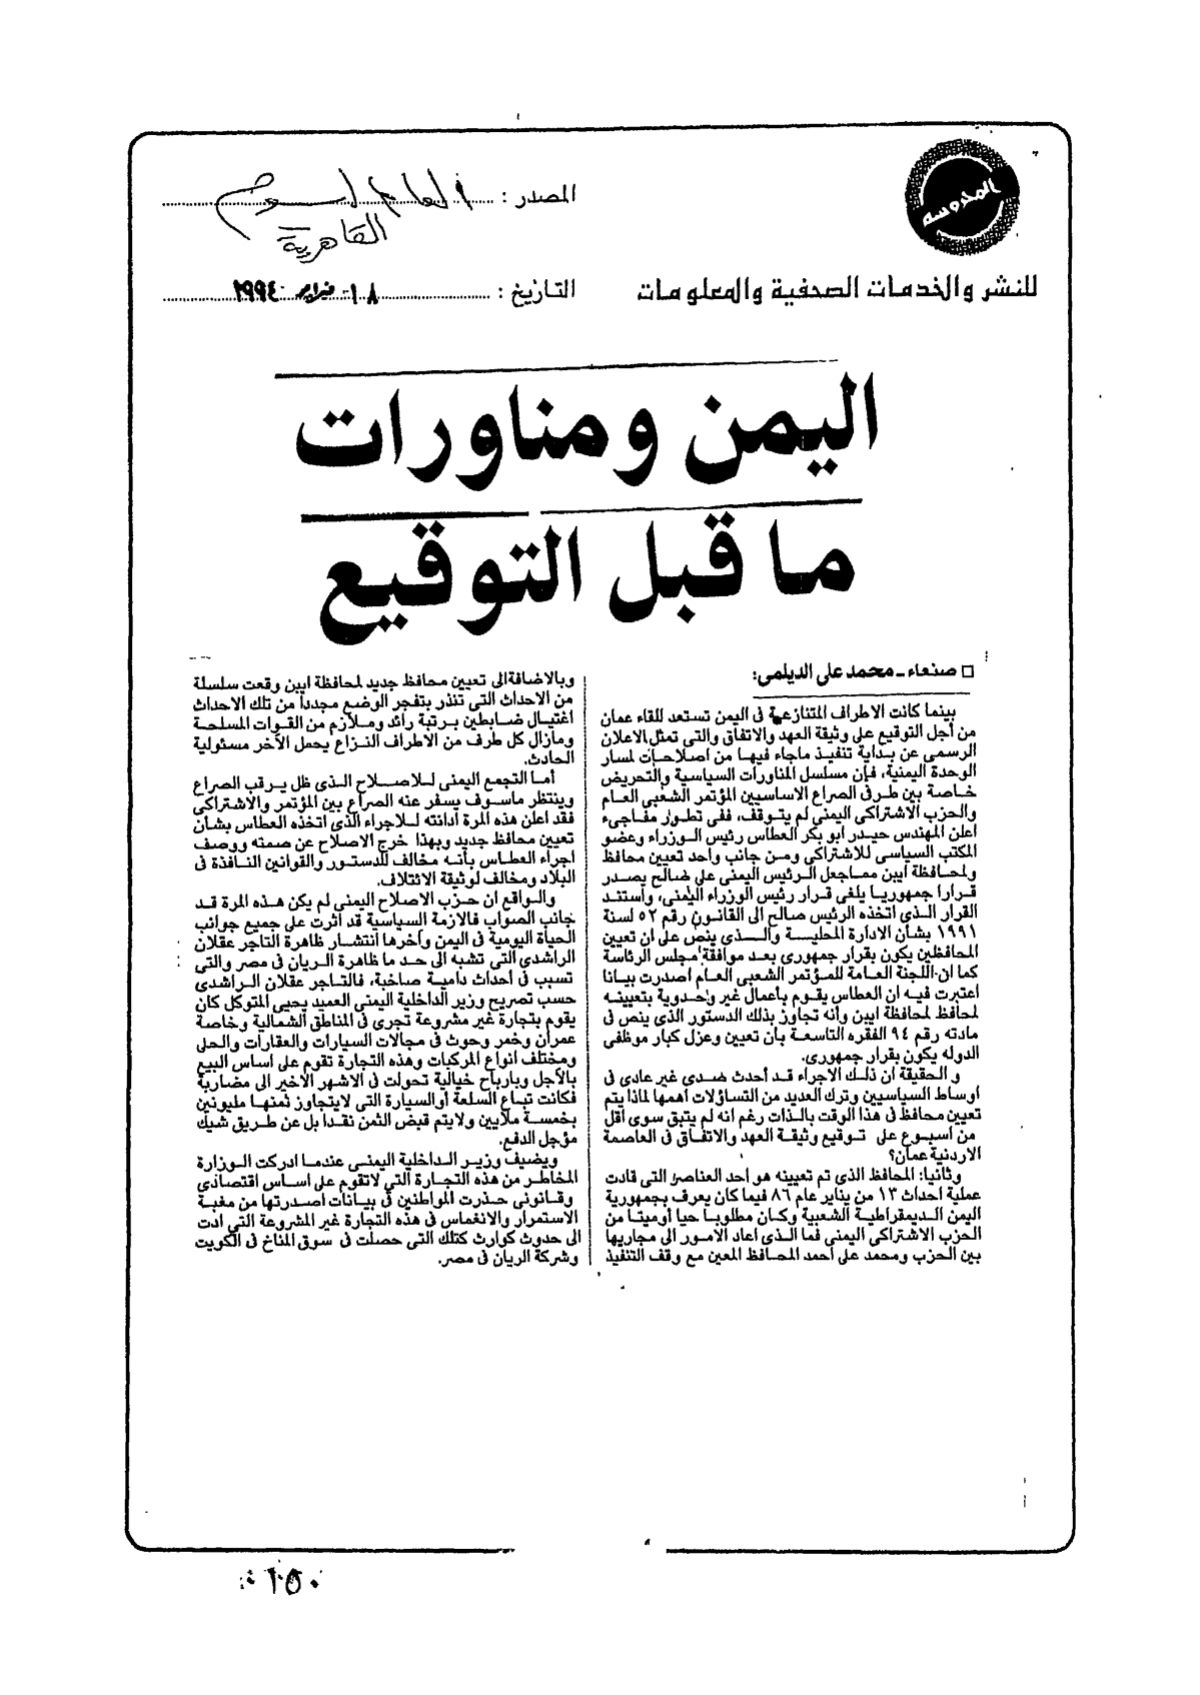 المحروسه
المصدر : العالم اليوم
القاهرية
للنشر والخدمات الصحفية والمعلومات
التاريخ : ١٨ فبراير ١٩٩٤
اليمن ومناورات
ما قبل التوقيع
□ صنعاء ـ محمد على الديلمى:
بينما كانت الاطراف المتنازعة فى اليمن تستعد للقاء عمان
من أجل التوقيع على وثيقة العهد والاتفاق والتى تمثل الاعلان
الرسمى عن بداية تنفيذ ماجاء فيها من اصلاحات لمسار
الوحدة اليمنية، فإن مسلسل المناورات السياسية والتحريض
خاصة بين طرفى الصراع الاساسيين المؤتمر الشعبى العام
والحزب الاشتراكى اليمنى لم يتوقف، ففى تطور مفاجىء
اعلن المهندس حيدر ابو بكر العطاس رئيس الوزراء وعضو
المكتب السياسى للاشتراكى ومن جانب واحد تعيين محافظ
ولمحافظة أبين مماجعل الرئيس اليمنى على صالح يصدر
قرارا جمهوريا يلغى قرار رئيس الوزراء اليمنى، واستند
القرار الذى اتخذه الرئيس صالح الى القانون رقم ٥٢ لسنة
١٩٩١ بشأن الادارة المحلية والذى ينص على ان تعيين
المحافظين يكون بقرار جمهورى بعد موافقة مجلس الرئاسة
كما ان اللجنة العامة للمؤتمر الشعبى العام اصدرت بيانا
اعتبرت فيه ان العطاس يقوم بأعمال غير وحدوية بتعيينه
لمحافظ لمحافظة ابين وأنه تجاوز بذلك الدستور الذى ينص فى
مادته رقم ٩٤ الفقره التاسعة بان تعيين وعزل كبار موظفى
الدوله يكون بقرار جمهورى.
و الحقيقة ان ذلك الاجراء قد أحدث صدى غير عادى فى
أوساط السياسيين وترك العديد من التساؤلات أهمها لماذا يتم
تعيين محافظ فى هذا الوقت بالذات رغم انه لم يتبق سوى أقل
من أسبوع على توقيع وثيقة العهد والاتفاق فى العاصمة
الاردنية عمان؟
وثانيا: المحافظ الذى تم تعيينه هو أحد العناصر التى قادت
عملية احداث ١٣ من يناير عام ٨٦ فيما كان يعرف بجمهورية
اليمن الديمقراطية الشعبية وكان مطلوبا حيا أوميتا من
الحزب الاشتراكى اليمنى فما الذى اعاد الامور الى مجاريها
بين الحزب ومحمد على أحمد المحافظ المعين مع وقف التنفيذ
وبالاضافة الى تعيين محافظ جديد لمحافظة ابين وقعت سلسلة
من الاحداث التى تنذر بتفجر الوضع مجددا من تلك الاحداث
اغتيال ضابطين برتبة رائد وملازم من القوات المسلحة
ومازال كل طرف من الاطراف النزاع يحمل الآخر مسئولية
الحادث.
أما التجمع اليمنى للاصلاح الذى ظل يرقب الصراع
وينتظر ماسوف يسفر عنه الصراع بين المؤتمر والاشتراكى
فقد اعلن هذه المرة ادانته للاجراء الذى اتخذه العطاس بشأن
تعيين محافظ جديد وبهذا خرج الاصلاح عن صمته ووصف
اجراء العطاس بأنه مخالف للدستور والقوانين النافذة فى
البلاد ومخالف لوثيقة الائتلاف.
والواقع ان حزب الاصلاح اليمنى لم يكن هذه المرة قد
جانب الصواب فالازمة السياسية قد أثرت على جميع جوانب
الحياة اليومية فى اليمن وآخرها انتشار ظاهرة التاجر عقلان
الراشدى التى تشبه الى حد ما ظاهرة الريان فى مصر والتى
تسبب فى أحداث دامية صاخبة، فالتاجر عقلان الراشدى
حسب تصريح وزير الداخلية اليمنى العميد يحيى المتوكل كان
يقوم بتجارة غير مشروعة تجرى فى المناطق الشمالية وخاصة
عمران وخمر وحوث فى مجالات السيارات والعقارات والحلى
ومختلف انواع المركبات وهذه التجارة تقوم على اساس البيع
بالآجل وبارباح خيالية تحولت فى الاشهر الاخير الى مضاربة
فكانت تباع السلعة أوالسيارة التى لايتجاوز ثمنها مليونين
بخمسة ملايين ولايتم قبض الثمن نقدا بل عن طريق شيك
مؤجل الدفع.
ويضيف وزير الداخلية اليمنى عندما ادركت الوزارة
المخاطر من هذه التجارة التى لاتقوم على اساس اقتصادى
وقانونى حذرت المواطنين فى بيانات اصدرتها من مغبة
الاستمرار والانغماس فى هذه التجارة غير المشروعة التى أدت
الى حدوث كوارث كتلك التى حصلت فى سوق المناخ فى الكويت
وشركة الريان فى مصر.
١٥٠